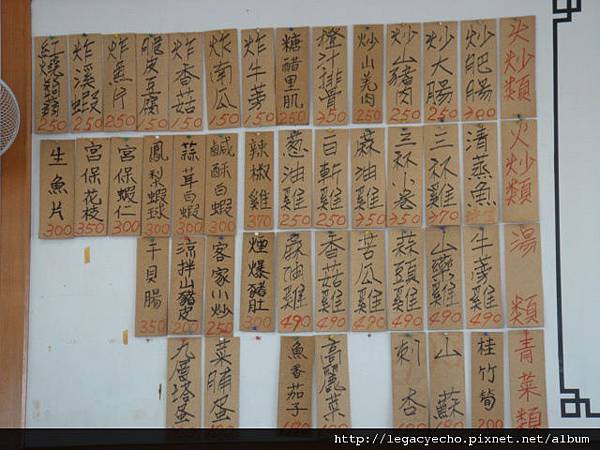 火炒類
炒肥腸
炒大腸 250
炒山豬肉 250
炒山羌肉 250
橙汁排骨 350
糖醋里肌 250
炸牛蒡 150
炸南瓜 150
炸香菇 150
脆皮豆腐 150
炸魚片 250
炸溪蝦 250
紅燒 250
火炒類
清蒸魚
三杯雞 370
三杯小卷 350
蔴油雞 350
白斬雞 250
葱油雞 250
辣椒雞 370
鹹酥白蝦 300
蒜茸白蝦 300
鳳梨蝦球 300
宮保蝦仁 300
宮保花枝 350
生魚片 300
湯類
牛蒡雞 490
山藥雞 490
蒜頭雞 490
苦瓜雞 490
香菇雞 490
蔴油雞 490
爆豬肚 300
客家小炒 250
涼拌山豬皮 200
干貝腸 350
青菜類
桂竹筍 200
山蘇 180
刺杏
高麗菜
魚香茄子
菜脯蛋
九層塔蛋
http://legacyecho.pixnet.net/album